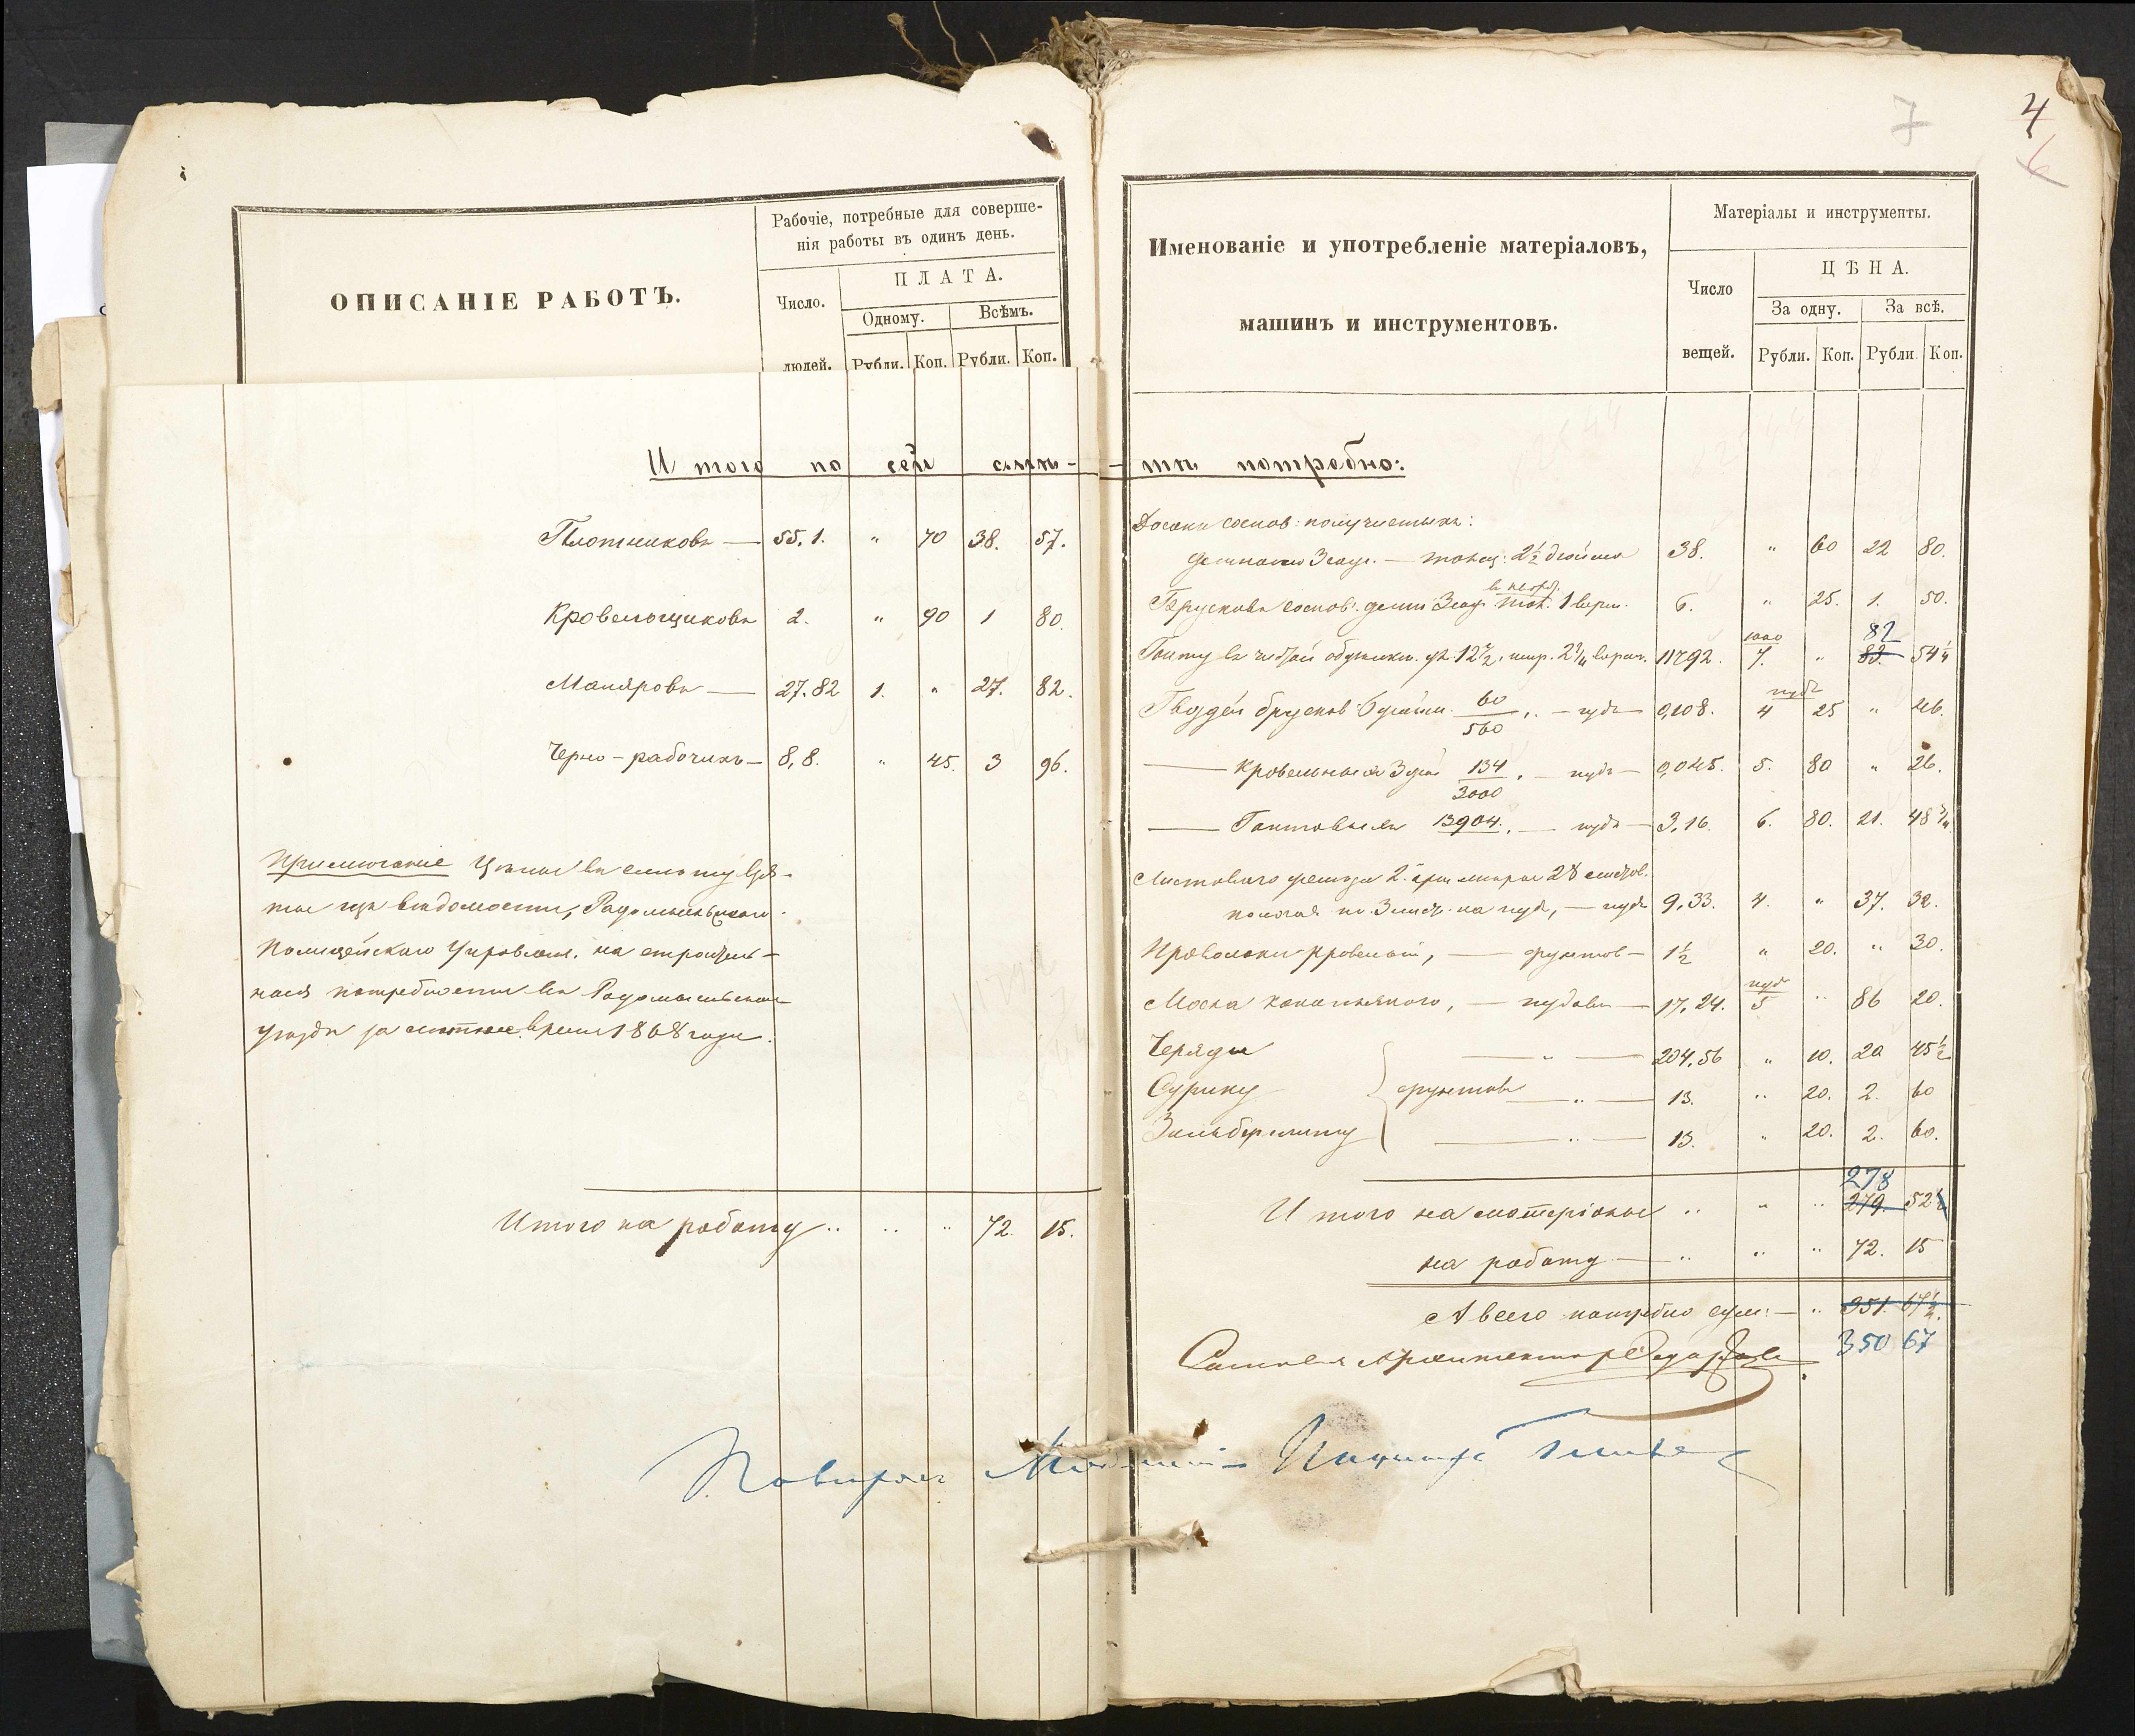 ОПИСАНІЕ РАБОТЪ.
Рабочіе, потребные для соверше-
нія работы въ одинъ день.
Число.
людей.
ПЛАТА.
Одному.
Всѣмъ.
Рубли. Коп. Рубли. Коп.
Итого по сей смѣ-
Плотниковъ — 55,1. " 70 38. 57.
Кровельщиковъ 2. " 90 1 80.
Маляровъ — 27.82 1. " 27. 82.
Черно-рабочихъ — 8,8. " 45. 3 96.
Примѣчаніе Цѣны въ смѣту взя-
ты изъ вѣдомости, Радомысльскаго
Полицейскаго Управлен. на строитель-
ныя потребности въ Радомысльском
уѣздѣ за лѣтнее время 1868 года.
Итого на работу .. .. " 72. 15.
7
4
6
Именованіе и употребленіе матеріаловъ,
машинъ и инструментовъ.
Матеріалы и инструменты.
Число
вещей.
ЦѢНА.
За одну.
За всѣ.
Рубли. Коп. Рубли. Коп.
тѣ потребно:
Досокъ соснов: получистыхъ:
длиною 3 саж. — толщ: 2½ дюйма 38. " 60 22 80.
Брусковъ соснов: длин 3 саж 1 верш. 6. " 25. 1. 50.
1000
82
Гонту въ чистой обдѣлки. дл. 12½, шир. 2¼ верш. 11792. 7. " 83. 54¼
пудъ
Гвоздей брусков: 6 дюйм. 60/560, — пудъ — 0,108. 4 25 " 46.
— Кровельныхъ 3 дюй 134/3000, — пудъ — 0,045. 5. 80 " 26.
— Гонтовыхъ 13904. — пудъ — 3,16. 6. 80. 21. 48¾
Листового желѣза 2. арш мѣрою 28 листов.
полагая по 3 лист. на пуд, — пудъ 9,33. 4. " 37. 32.
Проволоки кровельной, — фунтов — 1½ " 20. " 30.
пуд
Масла конопляного, — пудовъ — 17,24. 5 " 86 20.
Черляди — " — 204,56 " 10. 20 45½
Сурику фунтовъ — " — 13. " 20. 2. 60
Зильберглету — " — 13. " 20. 2. 60.
278
Итого на матеріалы .. " .. 279. 52½
на работу — .. " .. 72. 15
А всего потребно сум: — .. 351. 67½.
350 67
Составилъ Архитекторъ
Повѣрялъ